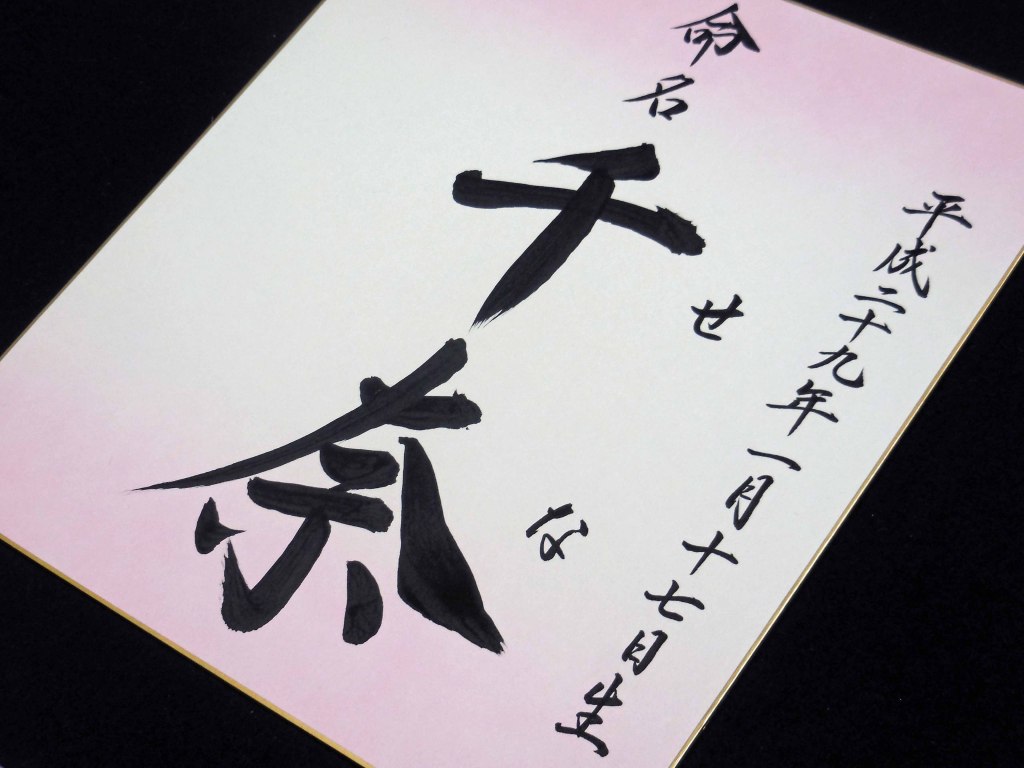 平成二十九年一月十七日生
命名
千奈
せな